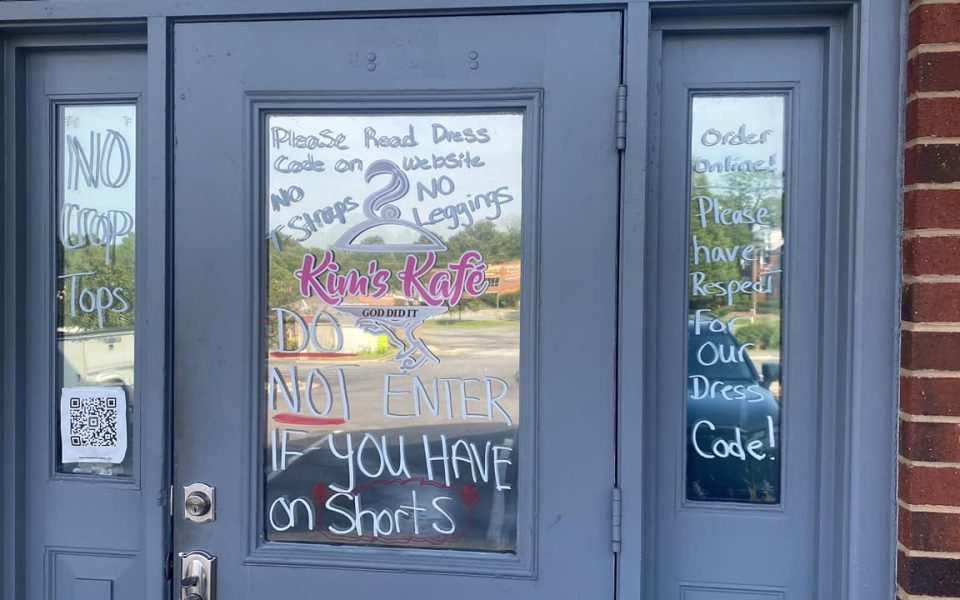 NO
Crop
Tops
Please Read Dress
Code on website
NO
T Straps
NO
Leggings
Kim's Kafé
GOD DID IT
DO
NOT ENTER
IF YOU HAVE
on Shorts
Order
Online!
Please
have
Respect
For
Our
Dress
Code!